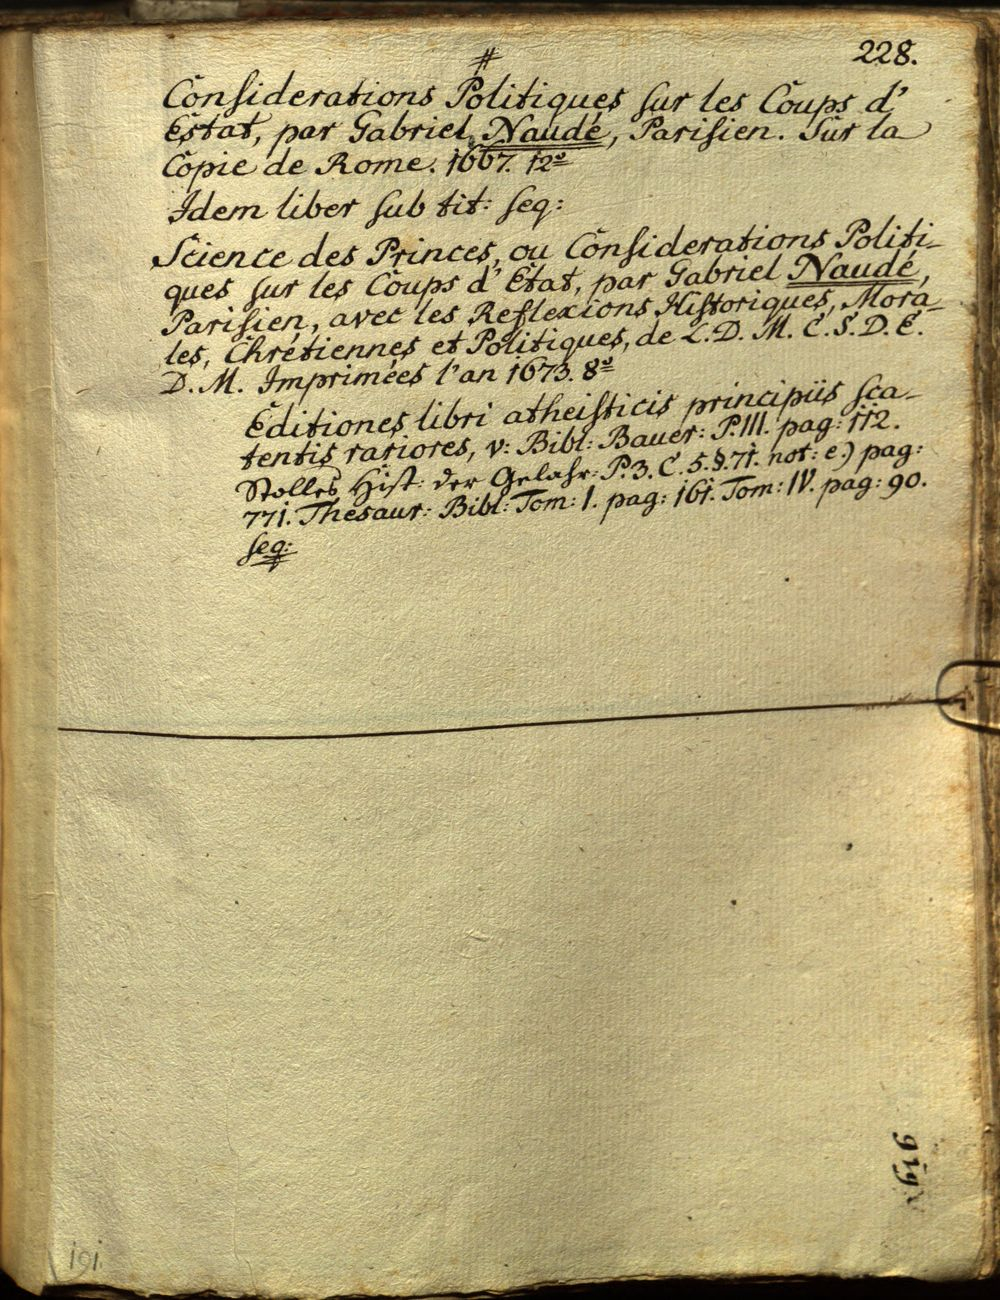 228.
#
Considerations Politiques sur les Coups d'
Estat, par Gabriel Naudé, Parisien. Sur la
Copie de Rome. 1667. 12º
Idem liber sub tit: seq:
Science des Princes, ou Considerations Politi-
ques sur les Coups d'Etat, par Gabriel Naudé,
Parisien, avec les Reflexions Historiques, Mora-
les, Chrétiennes et Politiques, de L. D. M. C. S. D. E.
D. M. Imprimées l'an 1673. 8º
Editiones libri atheisticis principiis sca-
tentis rariores, v: Bibl: Bauer: P. III. pag: 112.
Stolles Hist: der Gelahr: P. 3. C. 5. §. 71. not: e) pag:
771. Thesaur: Bibl: Tom: I. pag: 161. Tom: IV. pag: 90.
seq:
191.